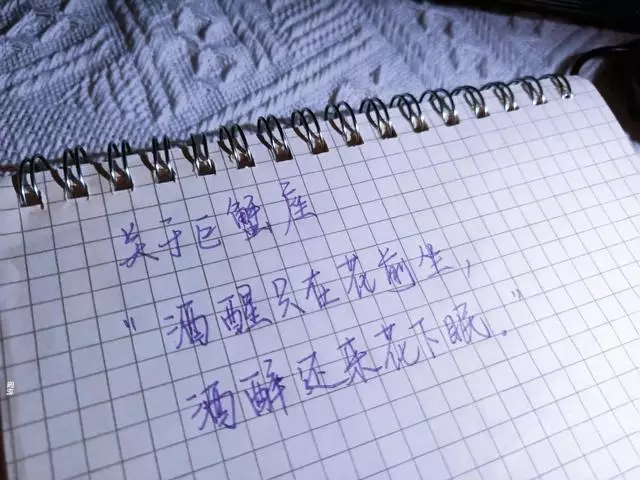 关于巨蟹座
"酒醒只在花前坐，
酒醉还来花下眠."